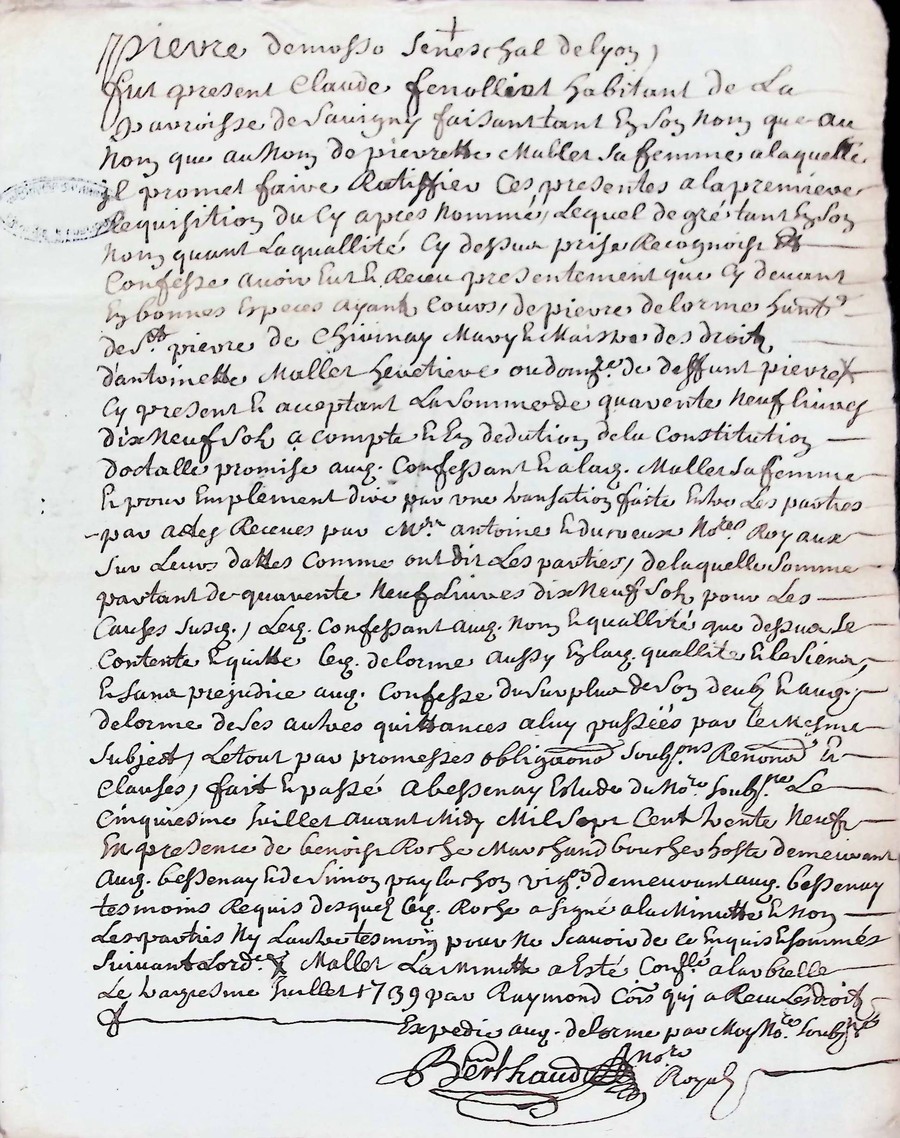 pierre demosso seneschal de lyon,
fut present Claude fenolliot habitant de La
parroisse de Savigny faisant tant En Son Nom que au
Nom que au Nom de pierrette Mallet Sa femme a laquelle
jl promet faire Ratiffier Ces presentes a la premiere
Requisition du Cy apres Nommé, Lequel de gré tant En Son
Nom quant La quallité Cy dessus prise Recognoist Et
Confesse avoir Eut Et Receu presentement que Cy devant
En bonnes Especes Ayant Cours, de pierre delorme hantt
de St pierre de Mary Et Maistre des droits
d'antoinette Mallet heretiere de deffunt pierre X
Cy present Et acceptant La Somme de quarente Neuf Livres
dix Neuf Sols a compte Et En dedution de la Constitution
doctalle promise aud. Confessant Et a lad. Mallet Sa femme
Et pour Emplement dire par une transation faite Entre Les parties
par actes Receues par Mtre antoine Et Nores Royaux
Sur Leurs dattes Comme ont dit Les parties, de laquelle Somme
partant de quarente Neuf Livres dix Neuf Sols pour Les
Causes Susd., Led. Confessant aud. Nom Et quallité que dessus Se
Contente Et quitte Led. delorme aussy En lad. quallité Et les Siens,
Et Sans prejudice aud. Confesse du Surplus de Son deub Et aud.
delorme de Ses autres quittances a luy passées par le Mesme
Subject, Le tout par promesses obligaons Soubons Renons Et
Clauses, fait Et passé A bessenay Estude du Nore Soubzne Le
Cinquiesme Juillet avant Midy Mil Sept Cent trente Neuf
En presence de benoist Roche Marchand boucher hoste demeurant
Aud. bessenay Et de Simon paylachon demeurant aud. bessenay
tesmoins Requis desquels Led. Roche a Signé a la Minutte Et Non
Les parties Ny Lautre tesmoin pour Ne Scavoir de ce Enquis Et Sommés
Suivant Lorde. X Mallet La Minutte a Esté Conllé a larbrelle
Le traziesme Juillet 1739 par Raymond Cois qui a Receu Les droits
Expedie aud. delorme par Moy Nore Soubzne
Berthaud nore
Royal